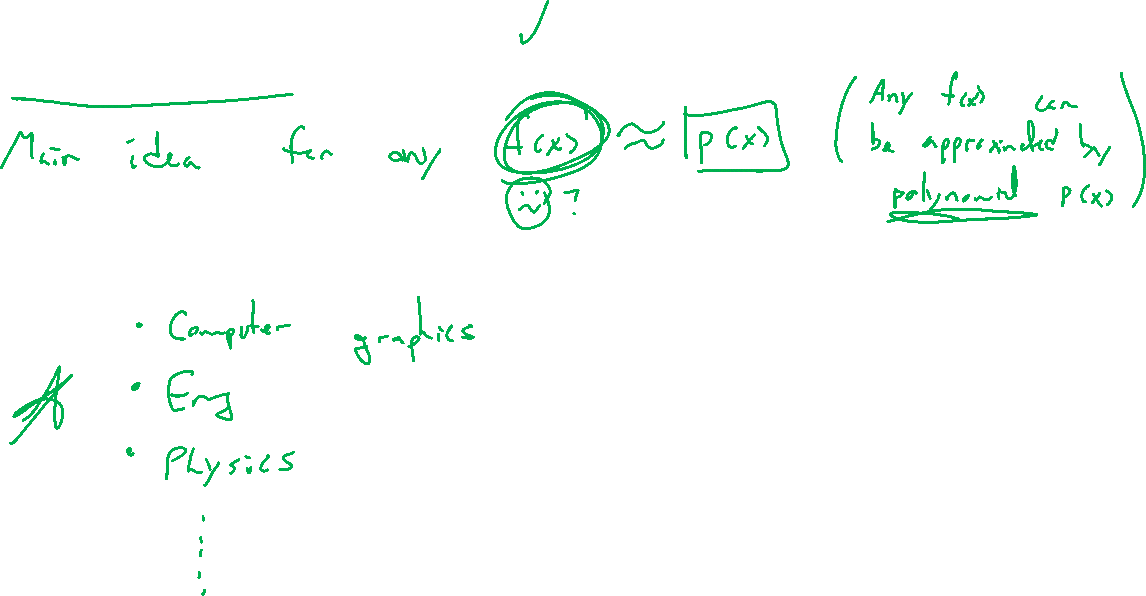 Main idea for any f(x) ≈ p(x) (Any f(x) can
be approximated by
polynomial p(x))
?
• Computer graphics
• Eng
• Physics